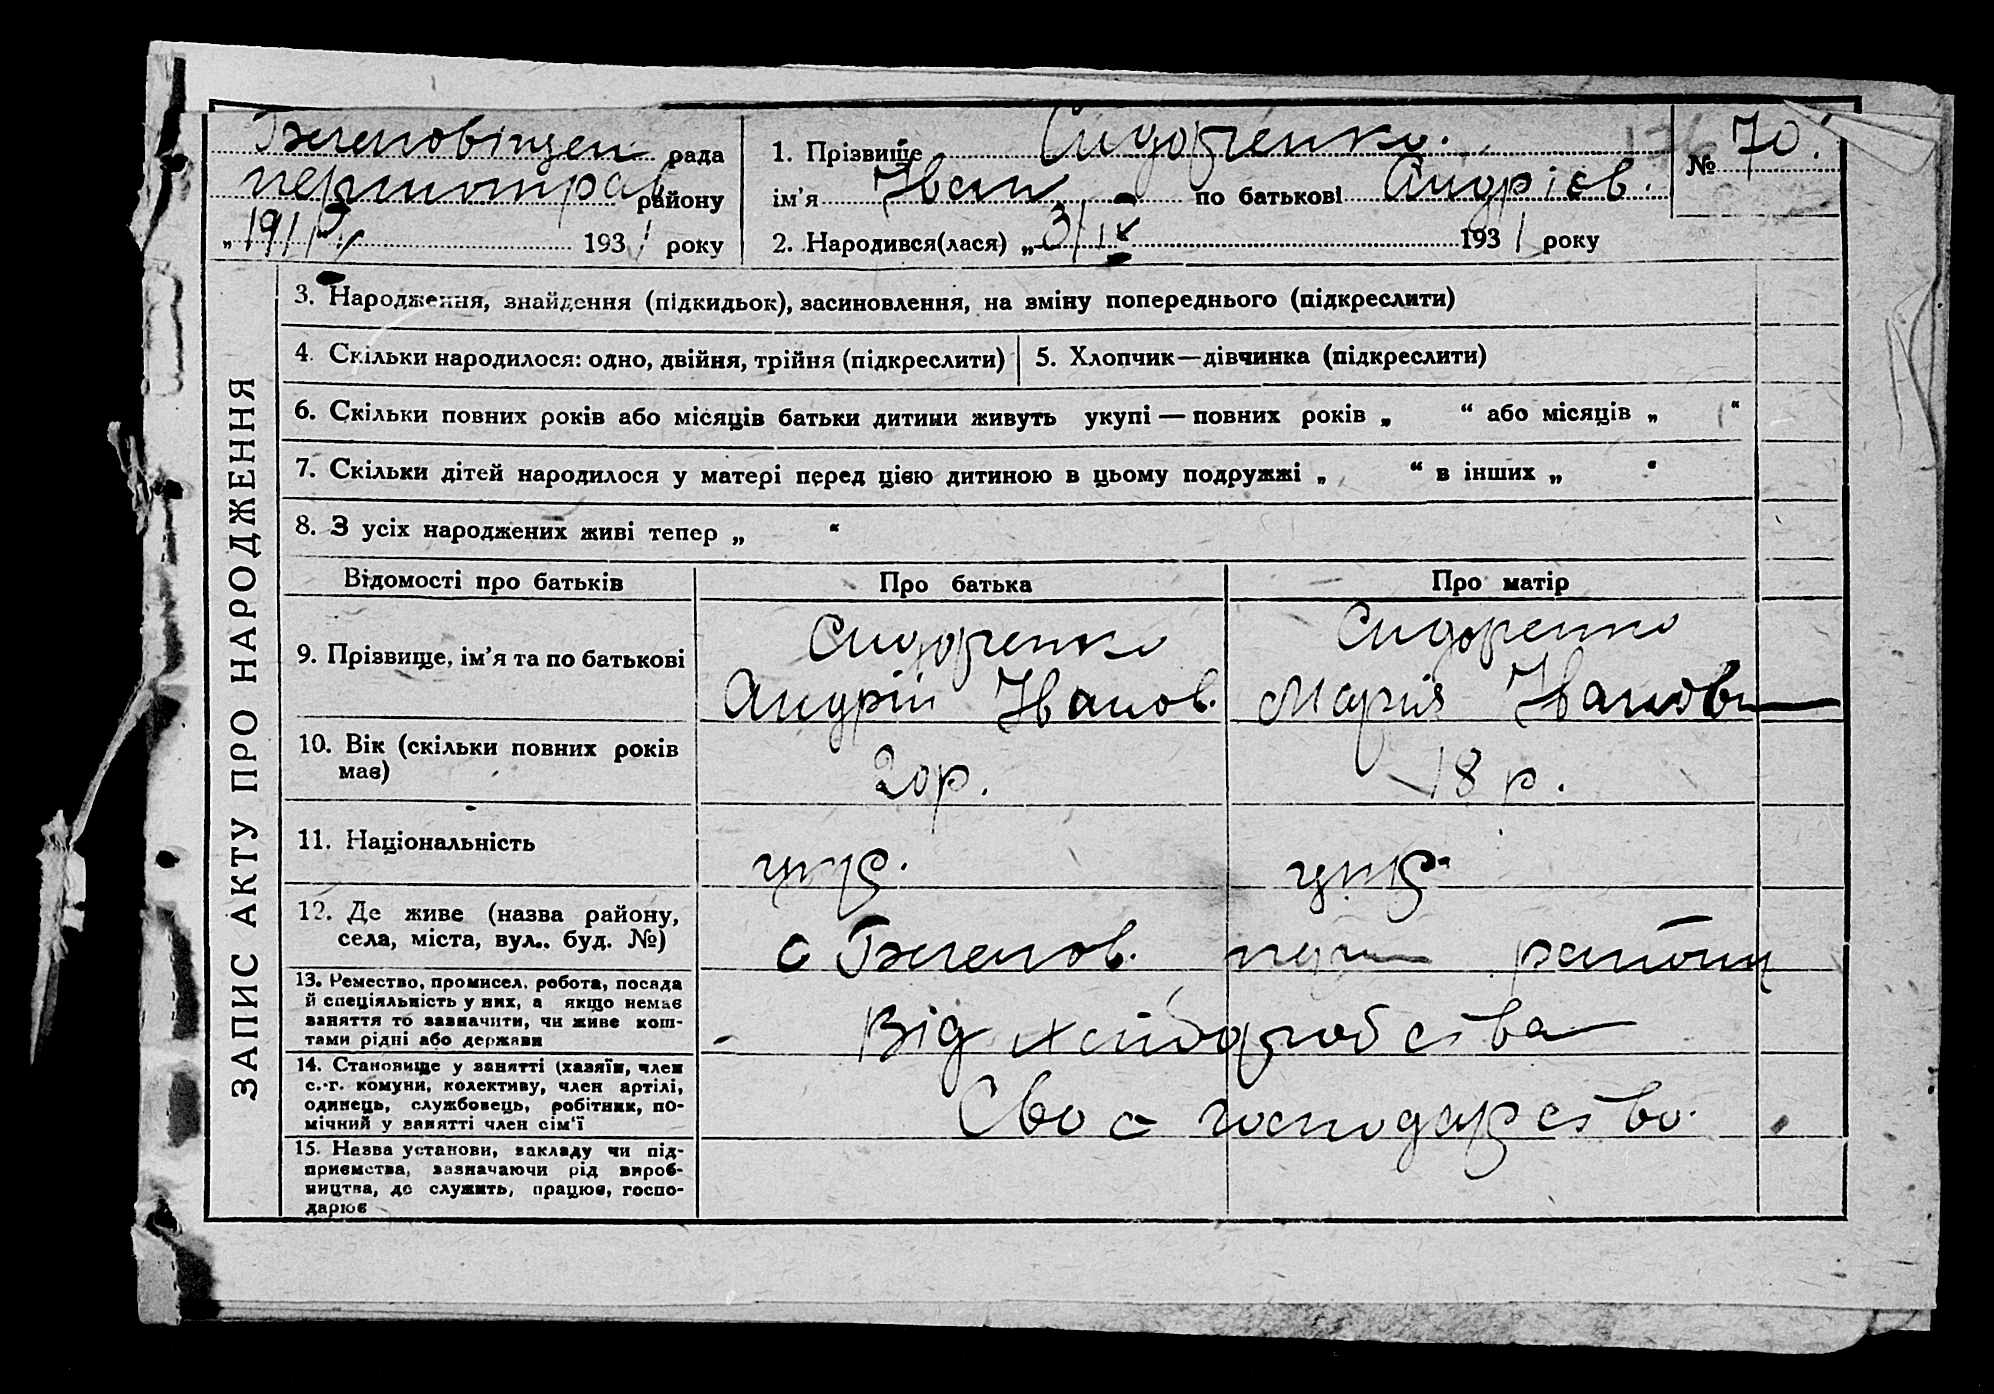 рада
1. Прізвище Сидоренко.
№ 70.
району
ім'я Іван по батькові Андрієв.
„ 1931 року
2. Народився(лася) „3/IX 1931 року
ЗАПИС АКТУ ПРО НАРОДЖЕННЯ
3. Народження, знайдення (підкидьок), засиновлення, на зміну попереднього (підкреслити)
4. Скільки народилося: одно, двійня, трійня (підкреслити)
5. Хлопчик—дівчинка (підкреслити)
6. Скільки повних років або місяців батьки дитини живуть укупі — повних років „ “ або місяців „ “
7. Скільки дітей народилося у матері перед цією дитиною в цьому подружжі „ “ в інших „ “
8. З усіх народжених живі тепер „ “
Відомості про батьків
Про батька
Про матір
9. Прізвище, ім'я та по батькові
Сидоренко
Андрій Іванов.
Сидоренко
Марія Іванов
10. Вік (скільки повних років
має)
20 р.
18 р.
11. Національність
укр.
укр.
12. Де живе (назва району,
села, міста, вул.. буд. №)
с району
13. Ремество, промисел, робота, посада
й спеціяльність у них, а якщо немає
заняття то зазначити, чи живе кош-
тами рідні або держави
Від хліборобства
14. Становище у занятті (хазяїн, член
с.-г. комуни, колективу, член артілі,
одинець, службовець, робітник, по-
мічний у занятті член сім'ї
Своє господарство.
15. Назва установи, закладу чи під-
приємства, зазначаючи рід вироб-
ництва, де служить, працює, госпо-
дарює